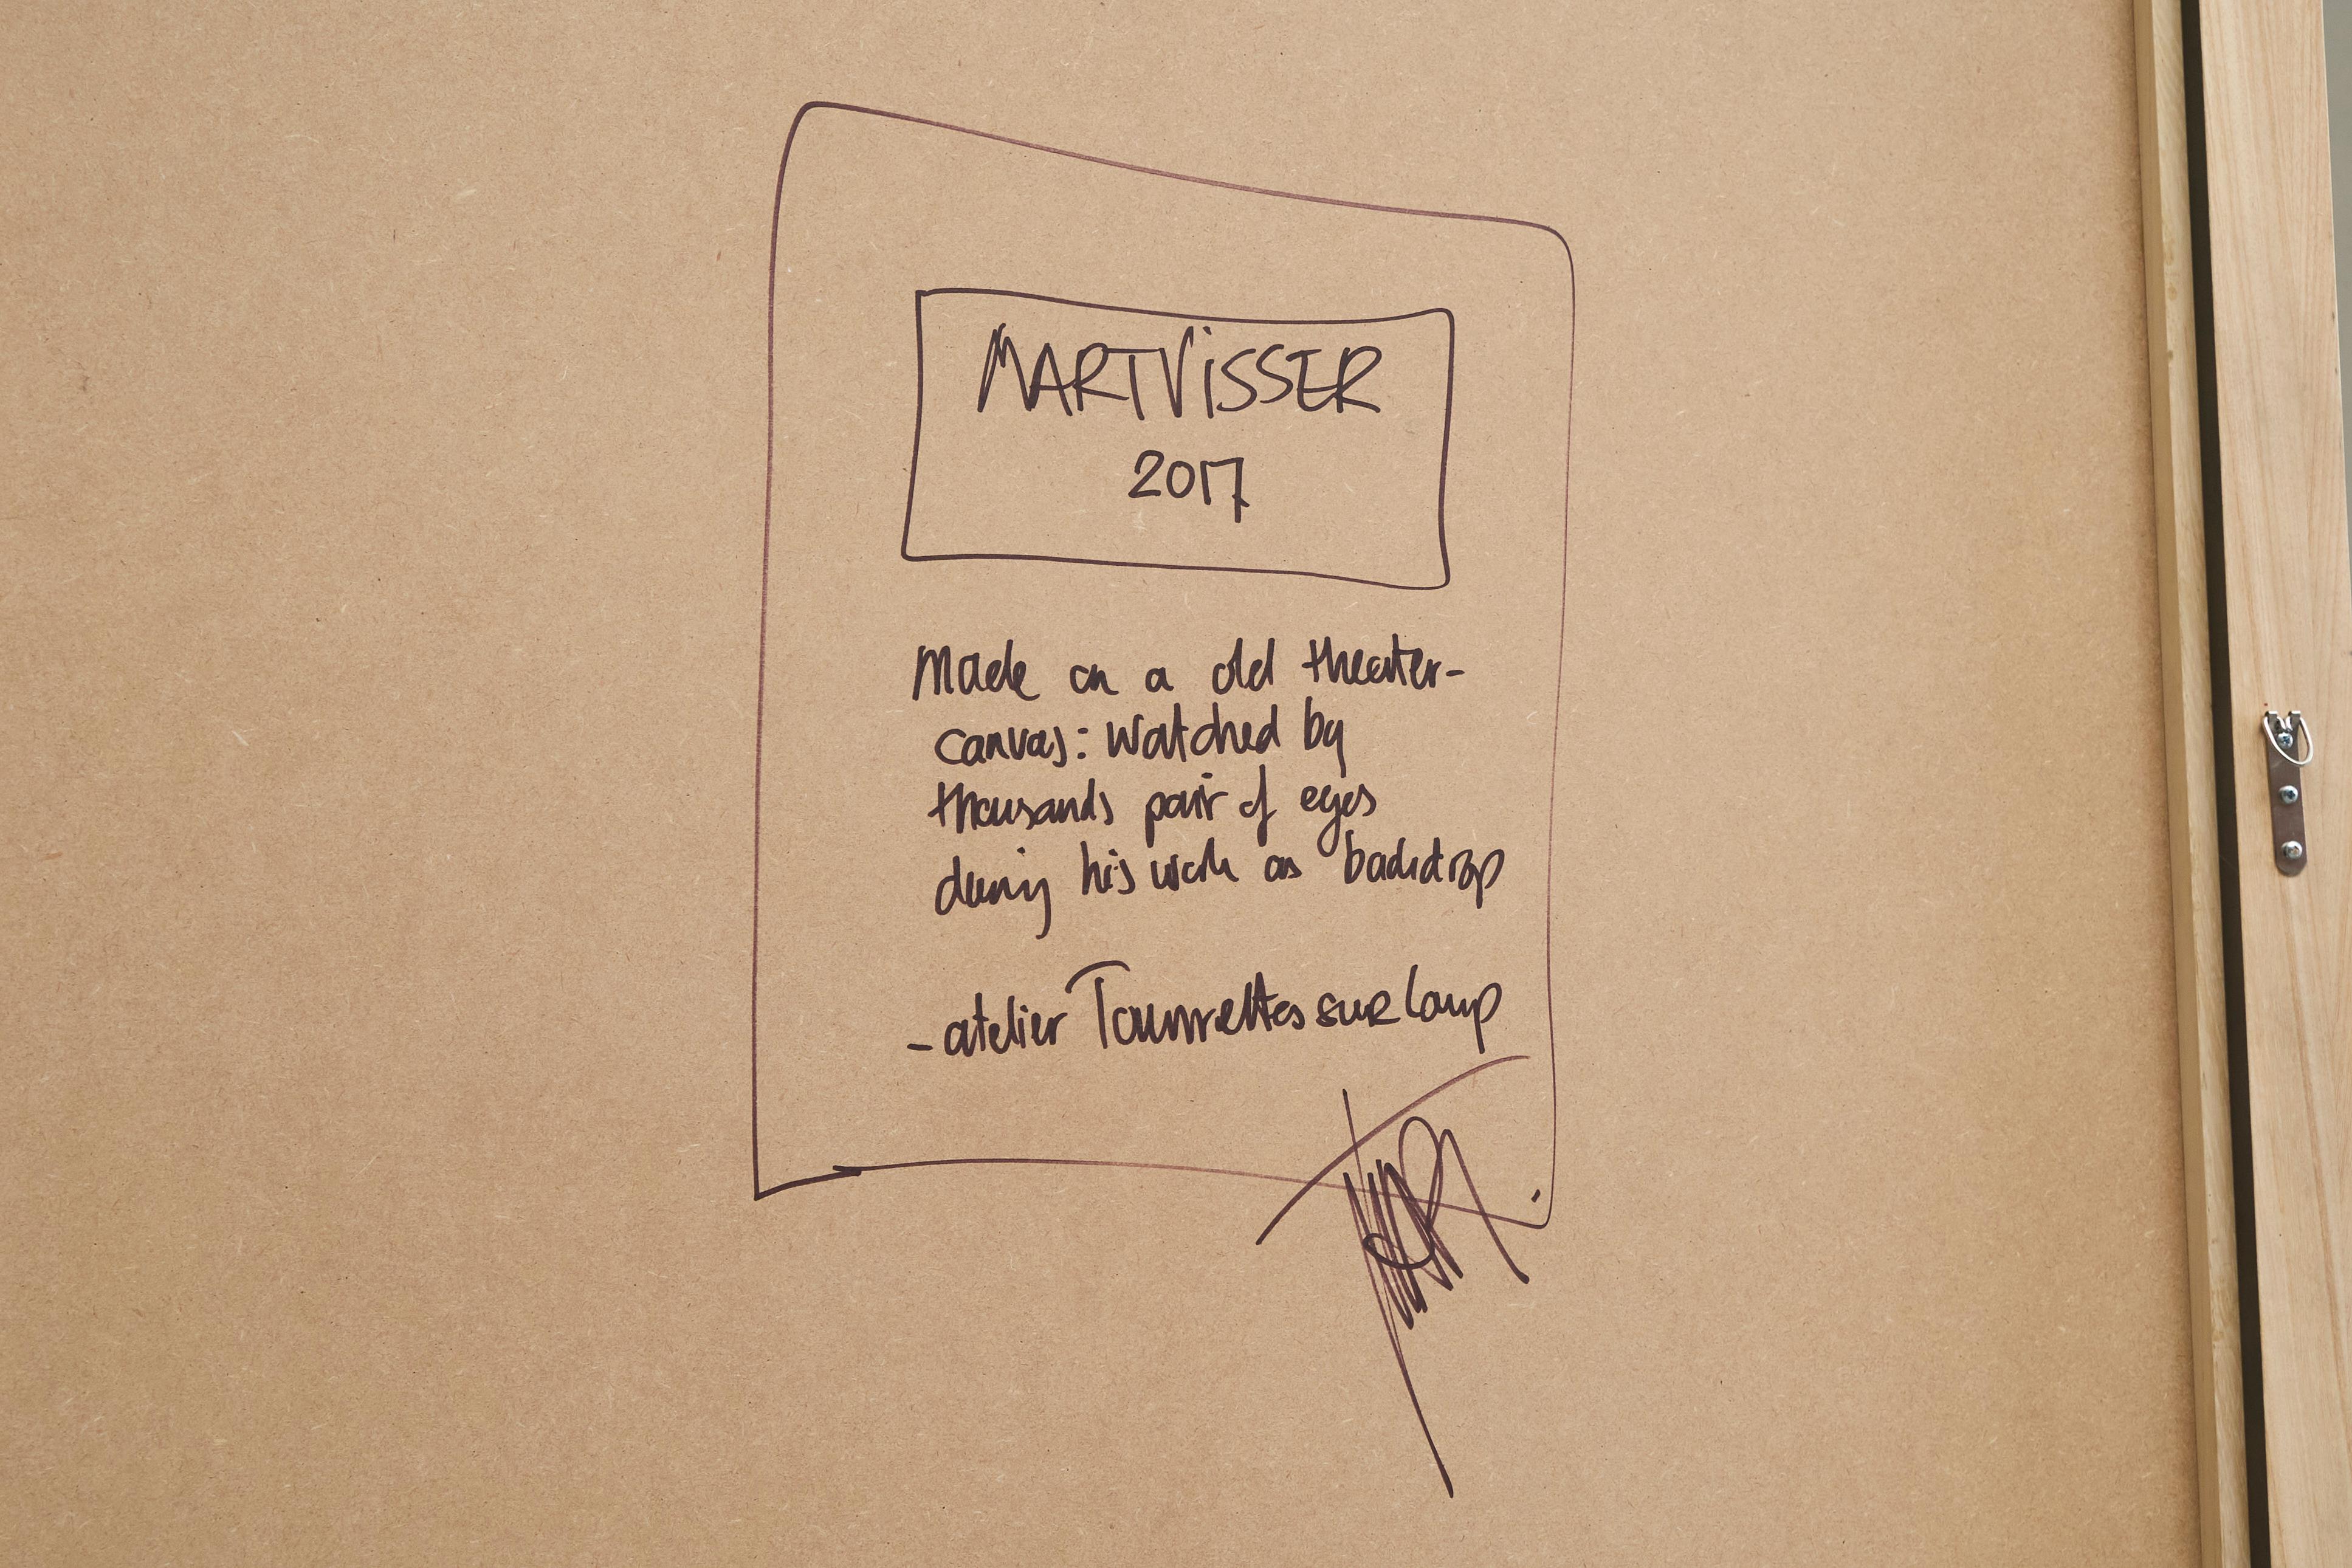 MART ViSSER
2017
Made on a old theater-
canvas: Watched by
thousands pair of eyes
during his work as backdrop
- atelier Tourrettes sur Loup
MART.